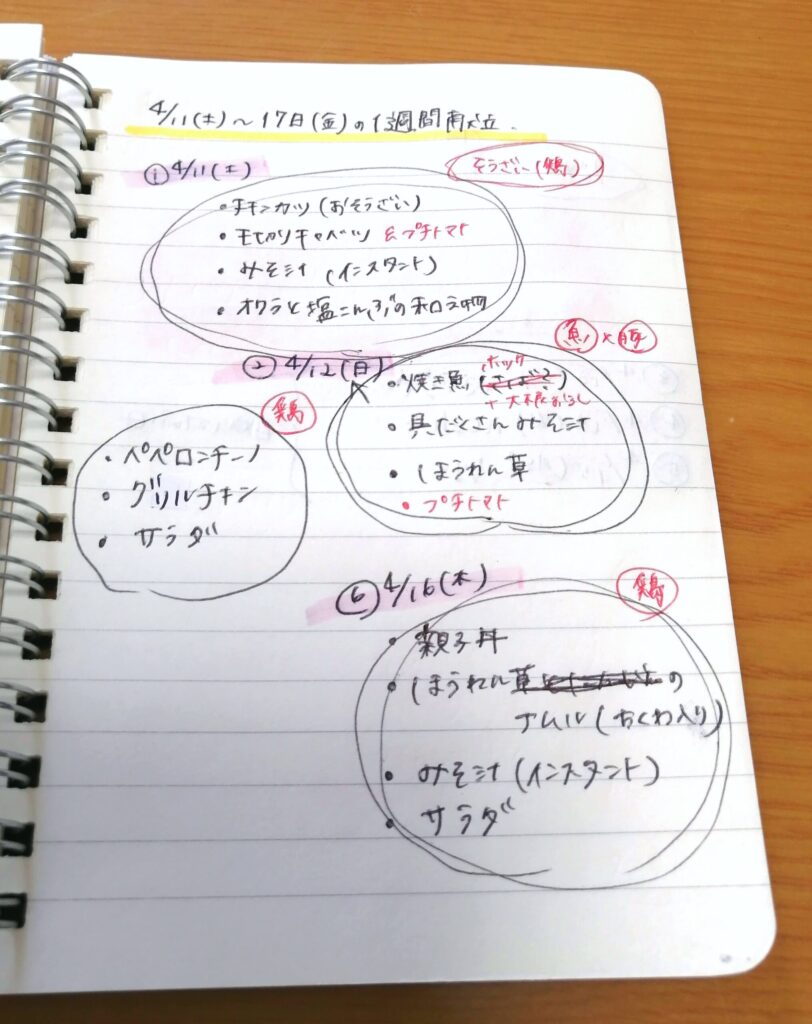 4/11(土)～17日(金)の1週間献立.
①4/11(土)
そうざい(鶏)
・チキンカツ(おそうざい)
・千切りキャベツ &プチトマト
・みそ汁 (インスタント)
・オクラと塩こんぶの和え物
②4/12(日)
魚×豚
・焼き魚(さば?)
ホッケ
+大根おろし
・具だくさんみそ汁
・ほうれん草
・プチトマト
鶏
・ペペロンチーノ
・グリルチキン
・サラダ
⑥4/16(木)
鶏
・親子丼
・ほうれん草の
ナムル(ちくわ入り)
・みそ汁(インスタント)
・サラダ